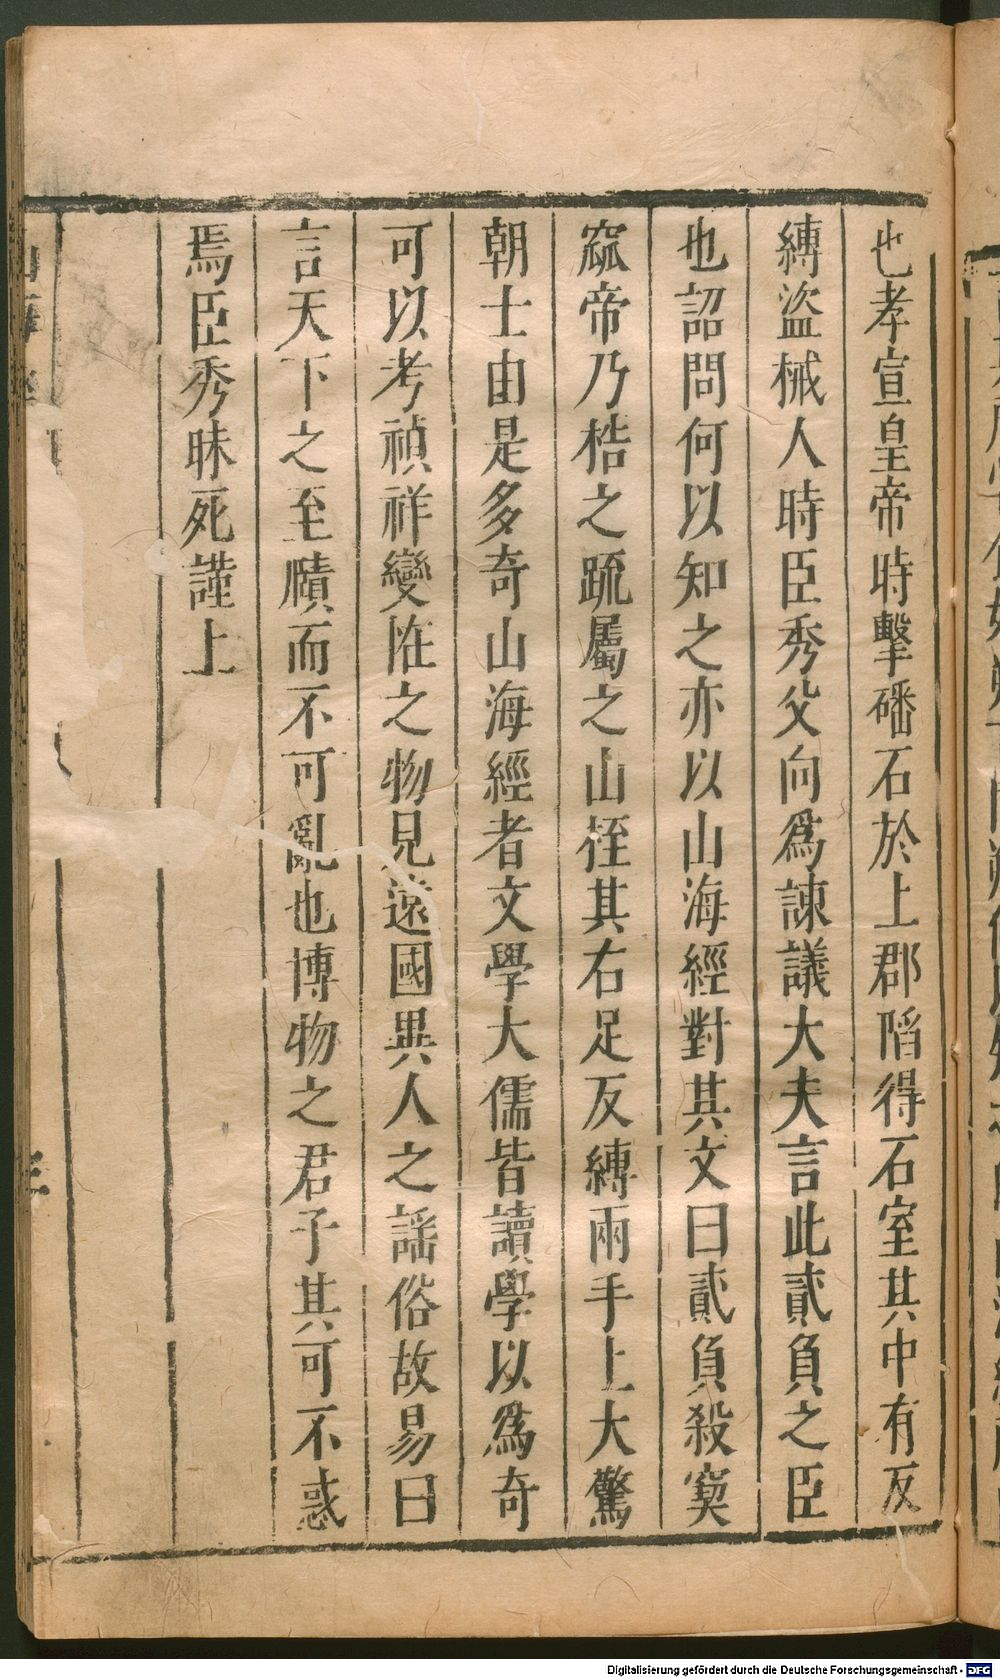 也孝宣皇帝時擊磻石於上郡陷得石室其中有反
縛盜械人時臣秀父向爲諫議大夫言此貳負之臣
也詔問何以知之亦以山海經對其文曰貳負殺窫
窳帝乃梏之疏屬之山桎其右足反縛兩手上大驚
朝士由是多奇山海經者文學大儒皆讀學以爲奇
可以考禎祥變恠之物見遠國異人之謡俗故易曰
言天下之至賾而不可亂也博物之君子其可不惑
焉臣秀昧死謹上
Digitalisierung gefördert durch die Deutsche Forschungsgemeinschaft - DFG